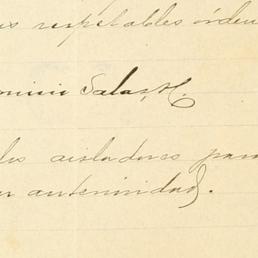 respetables órden
Salas, H.
los aisladores para
anterioridad.